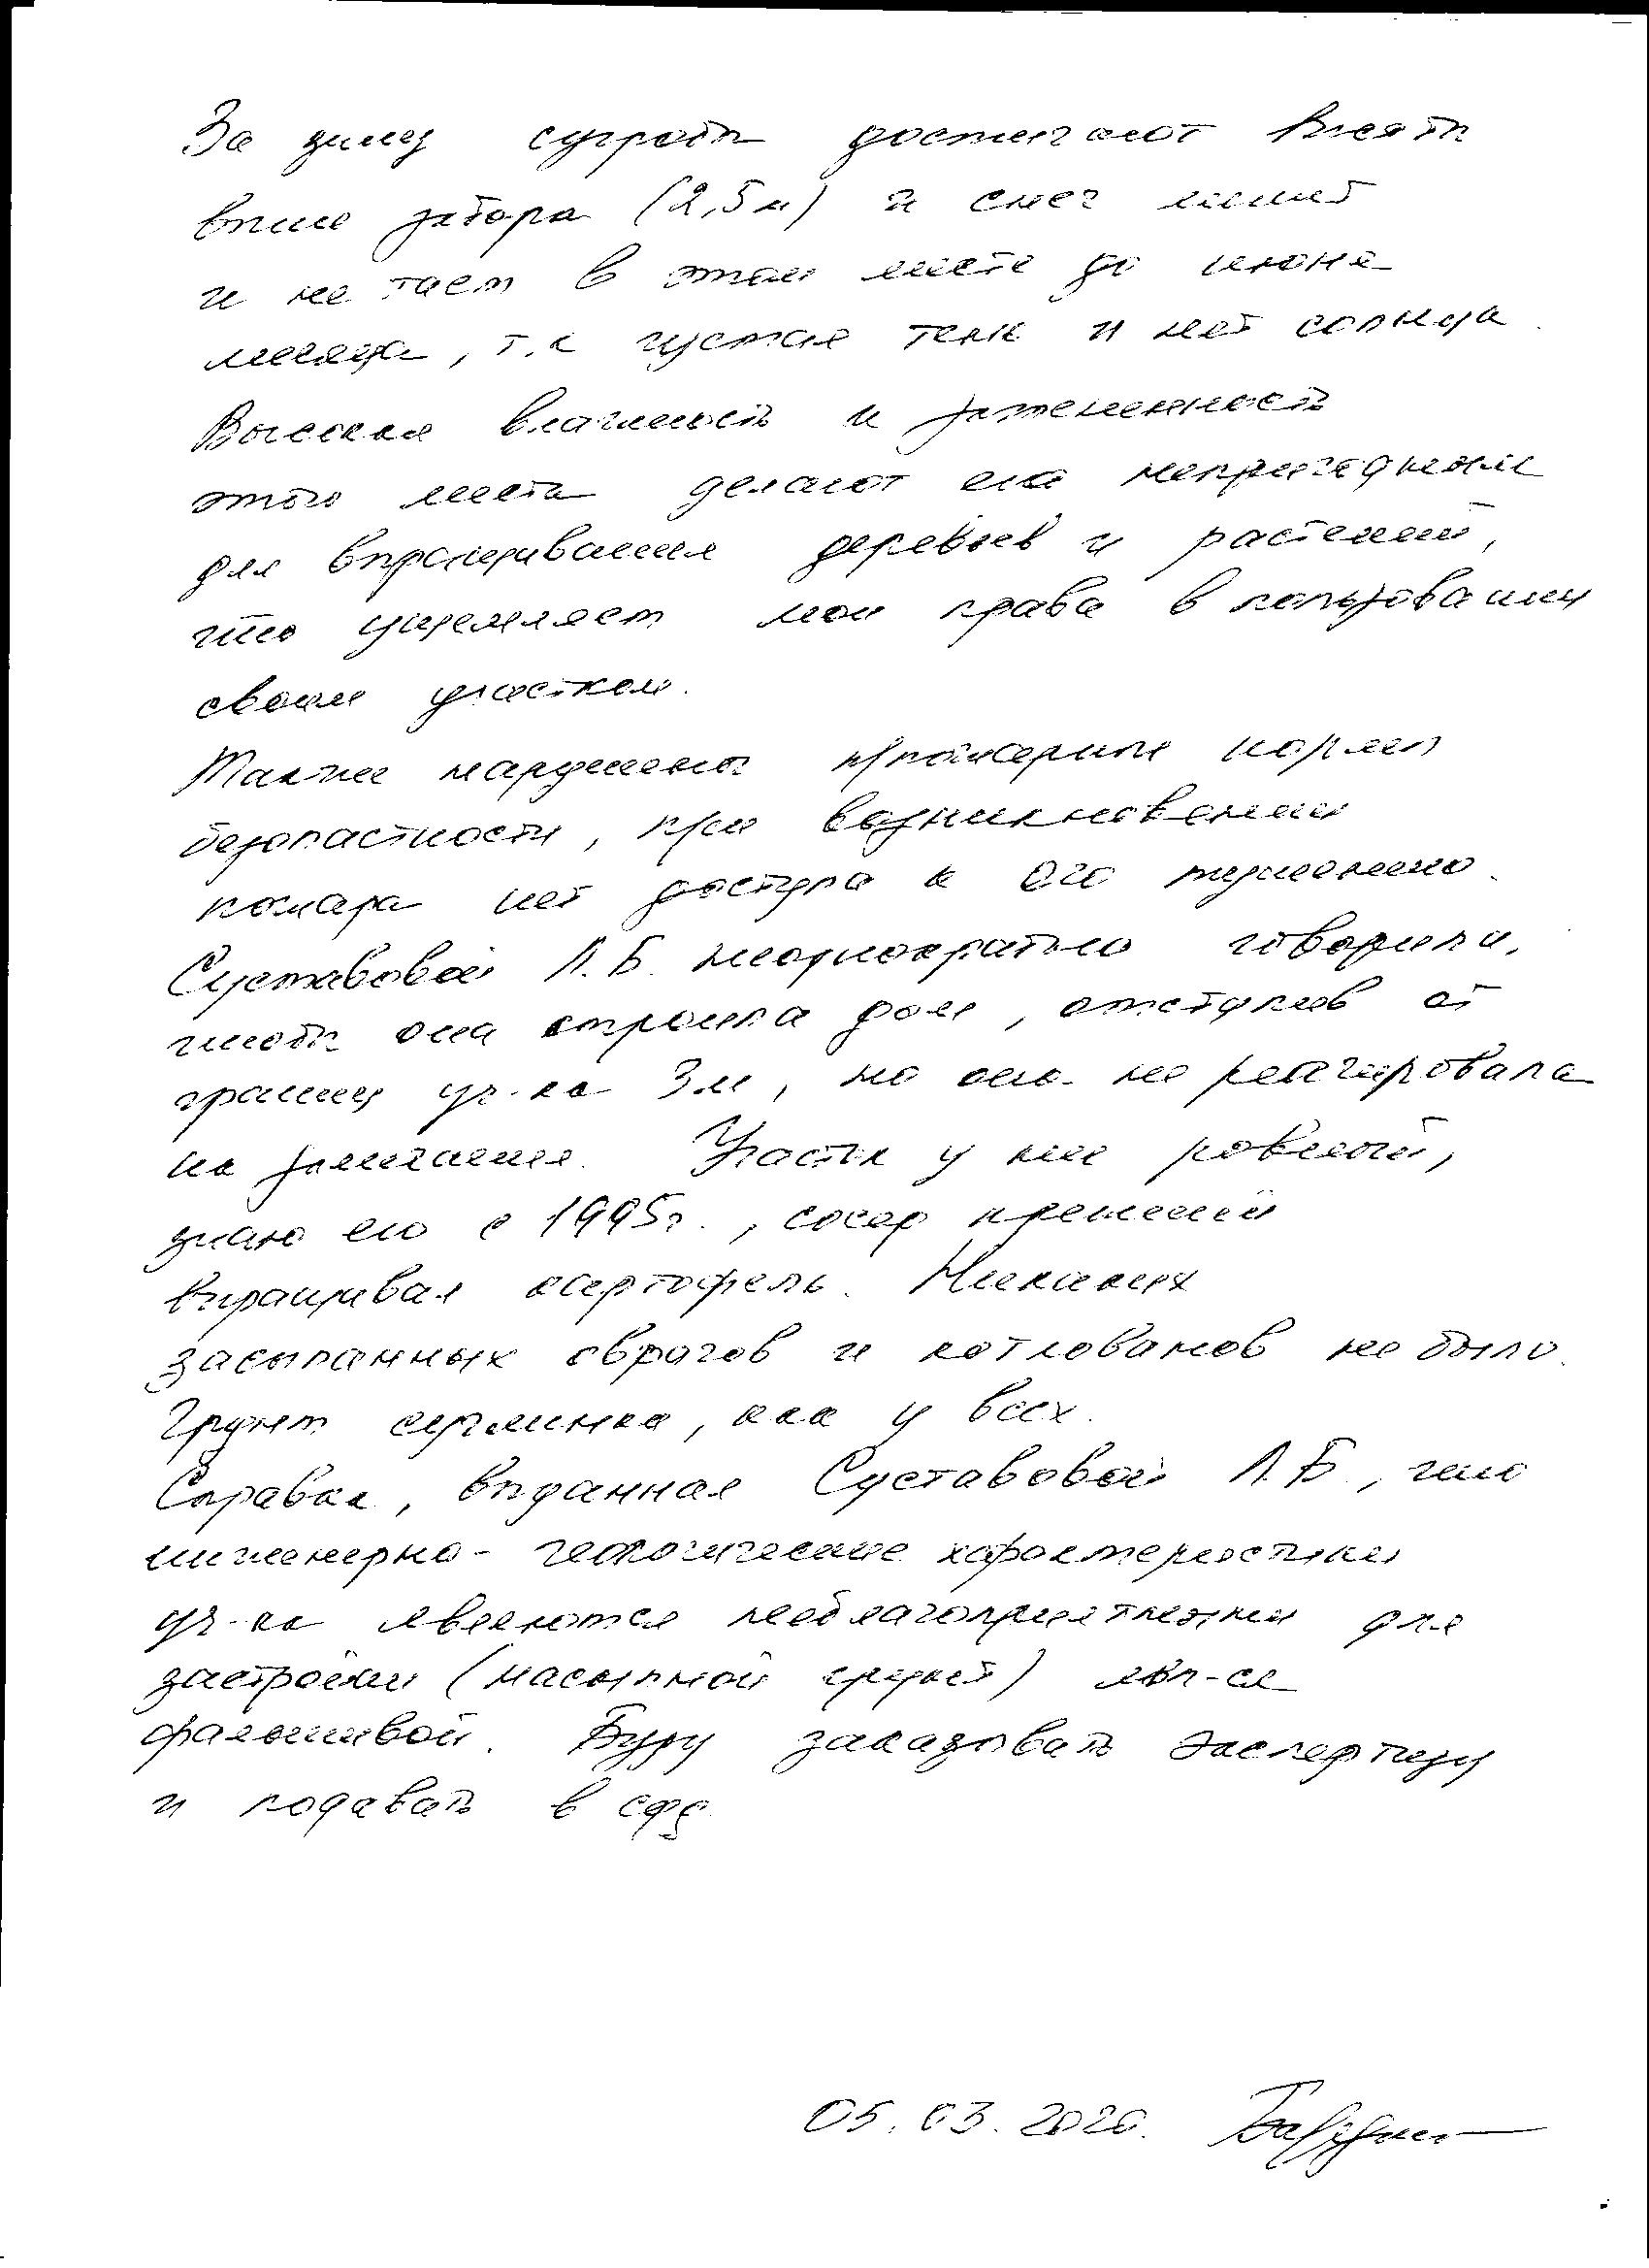 За зиму сугробы достигают высоты
выше забора (2,5 м) и снег лежит
и не тает в этом месте до июня
месяца, т.к густая тень и нет солнца.
Высокая влажность и затемненность
этого места делают его непригодным
для выращивания деревьев и растений,
что ущемляет мои права в пользовании
своим участком.
Также нарушены пожарные нормы
безопастности, при возникновении
пожара нет доступа к его тушению.
Суставовой Л.Б. неоднократно говорили,
чтобы она строила дом, отступив от
границы уч-ка 3м, но она не реагировала
на замечания. Участок у нее ровный,
знаю его с 1995г., сосед прежний
выращивал картофель. Никаких
засыпанных оврагов и котлованов не было.
Грунт суглинка, как у всех.
Справка, выданная Суставовой Л.Б., что
инженерно-геологические характеристики
уч-ка являются неблагоприятными для
застройки (насыпной грунт) явл-ся
фальшивой. Буду заказывать экспертизу
и подавать в суд.
05.03.2020.